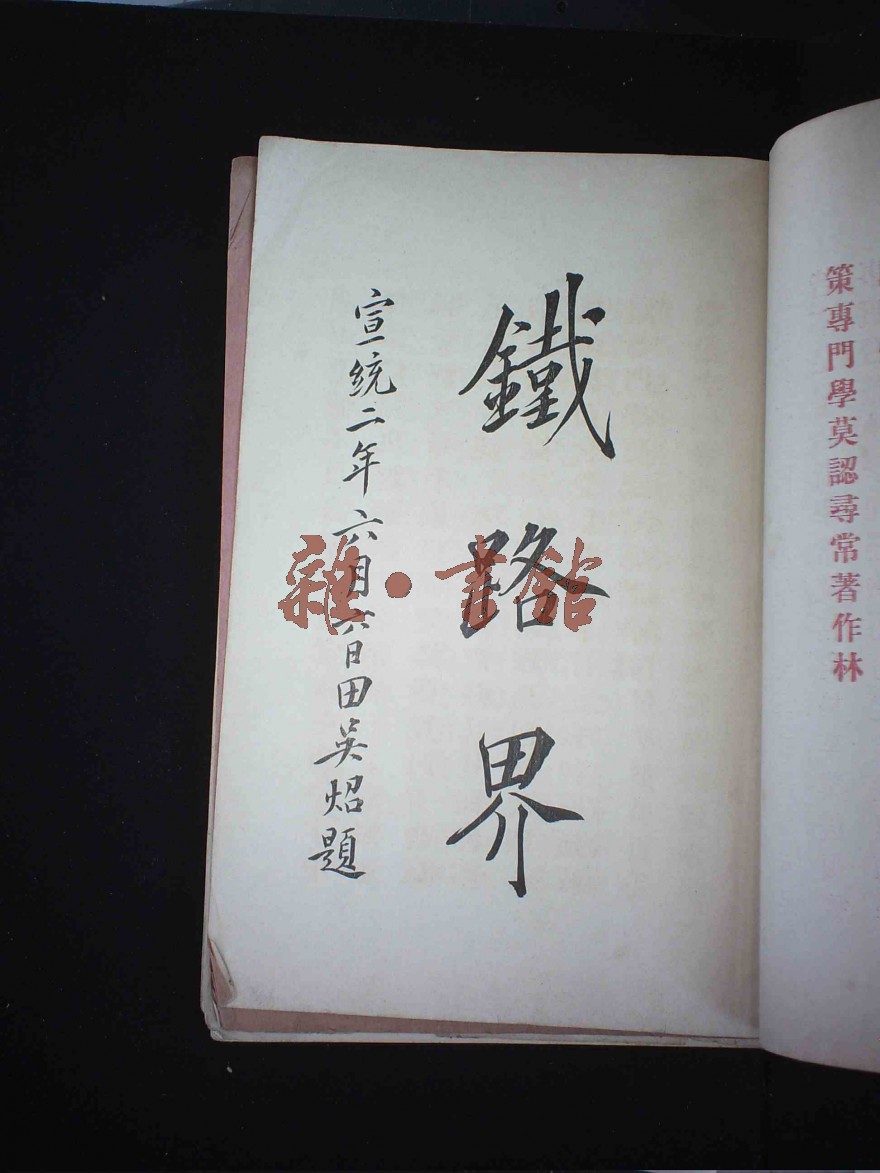 策專門學莫認尋常著作林
鐵路界
宣統二年六月六日田吳炤題
雜·書館